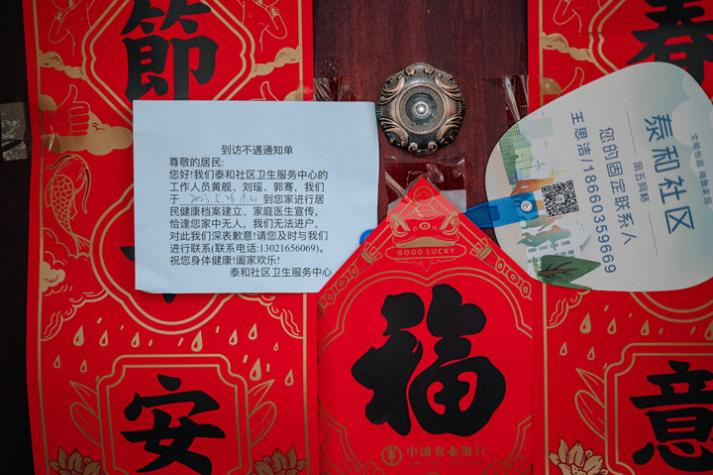 節
春
到访不遇通知单
尊敬的居民:
您好!我们泰和社区卫生服务中心的
工作人员黄靓、刘瑶、郭骞,我们
于 到您家进行居
民健康档案建立、家庭医生宣传,
恰逢您家中无人,我们无法进户,
对此我们深表歉意!请您及时与我们
进行联系(联系电话:13021656069)。
祝您身体健康!阖家欢乐!
泰和社区卫生服务中心
泰和社区
第五网格
您的固定联系人
王思浩/18660359669
GOOD LUCKY
福
中国农业银行
安
意